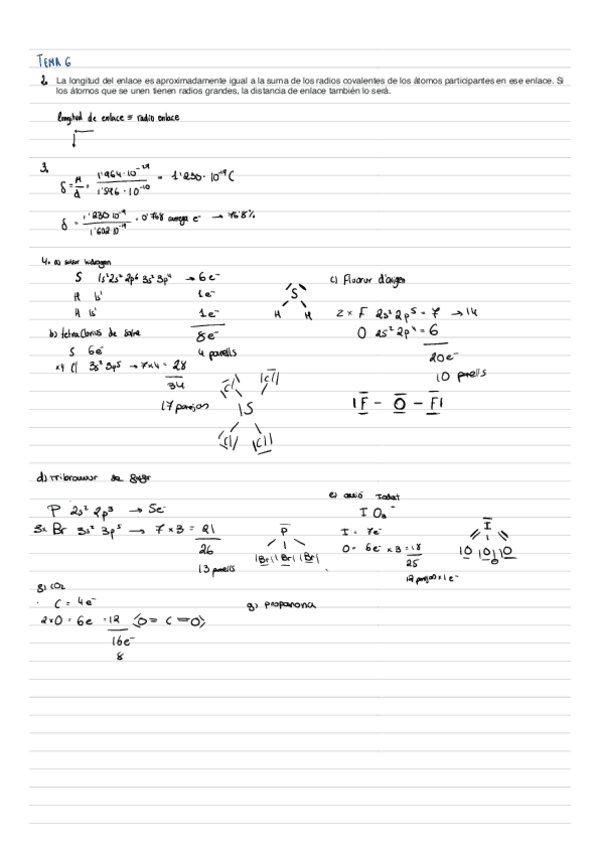 TEMA 6
2. La longitud del enlace es aproximadamente igual a la suma de los radios covalentes de los átomos participantes en ese enlace. Si
los átomos que se unen tienen radios grandes, la distancia de enlace también lo será.
longitud de enlace = radio enlace
3.
δ = μ/d = 1'964·10⁻²⁹ / 1'596·10⁻¹⁰ = 1'230·10⁻¹⁹ C
δ = 1'230·10⁻¹⁹ / 1'602·10⁻¹⁹ = 0'768 e⁻ → 76'8%
4. a)
S 1s² 2s² 2p⁶ 3s² 3p⁴ → 6e⁻
H 1s¹ 1e⁻
H 1s¹ 1e⁻
8e⁻
4 parells
S
H H
b) de
S 6e⁻
x4 Cl 3s² 3p⁵ → 7x4 = 28
34
17 parejas
Cl Cl
S
Cl Cl
c) Fluorur d'oxigen
2 x F 2s² 2p⁵ = 7 → 14
O 2s² 2p⁴ = 6
20e⁻
10 parells
|F - O - F|
d)
P 2s² 2p³ → 5e⁻
3x Br 3s² 3p⁵ → 7 x 3 = 21
26
13 parells
P
|Br| |Br| |Br|
e) anió Iodat
I O₃⁻
I = 7e⁻
O = 6e⁻ x 3 = 18
25
12 parejas + 1e⁻
I
|O |O| O|
g) CO₂
C = 4e⁻
2xO = 6e = 12
⟨O = C = O⟩
16e⁻
8
g) propanona